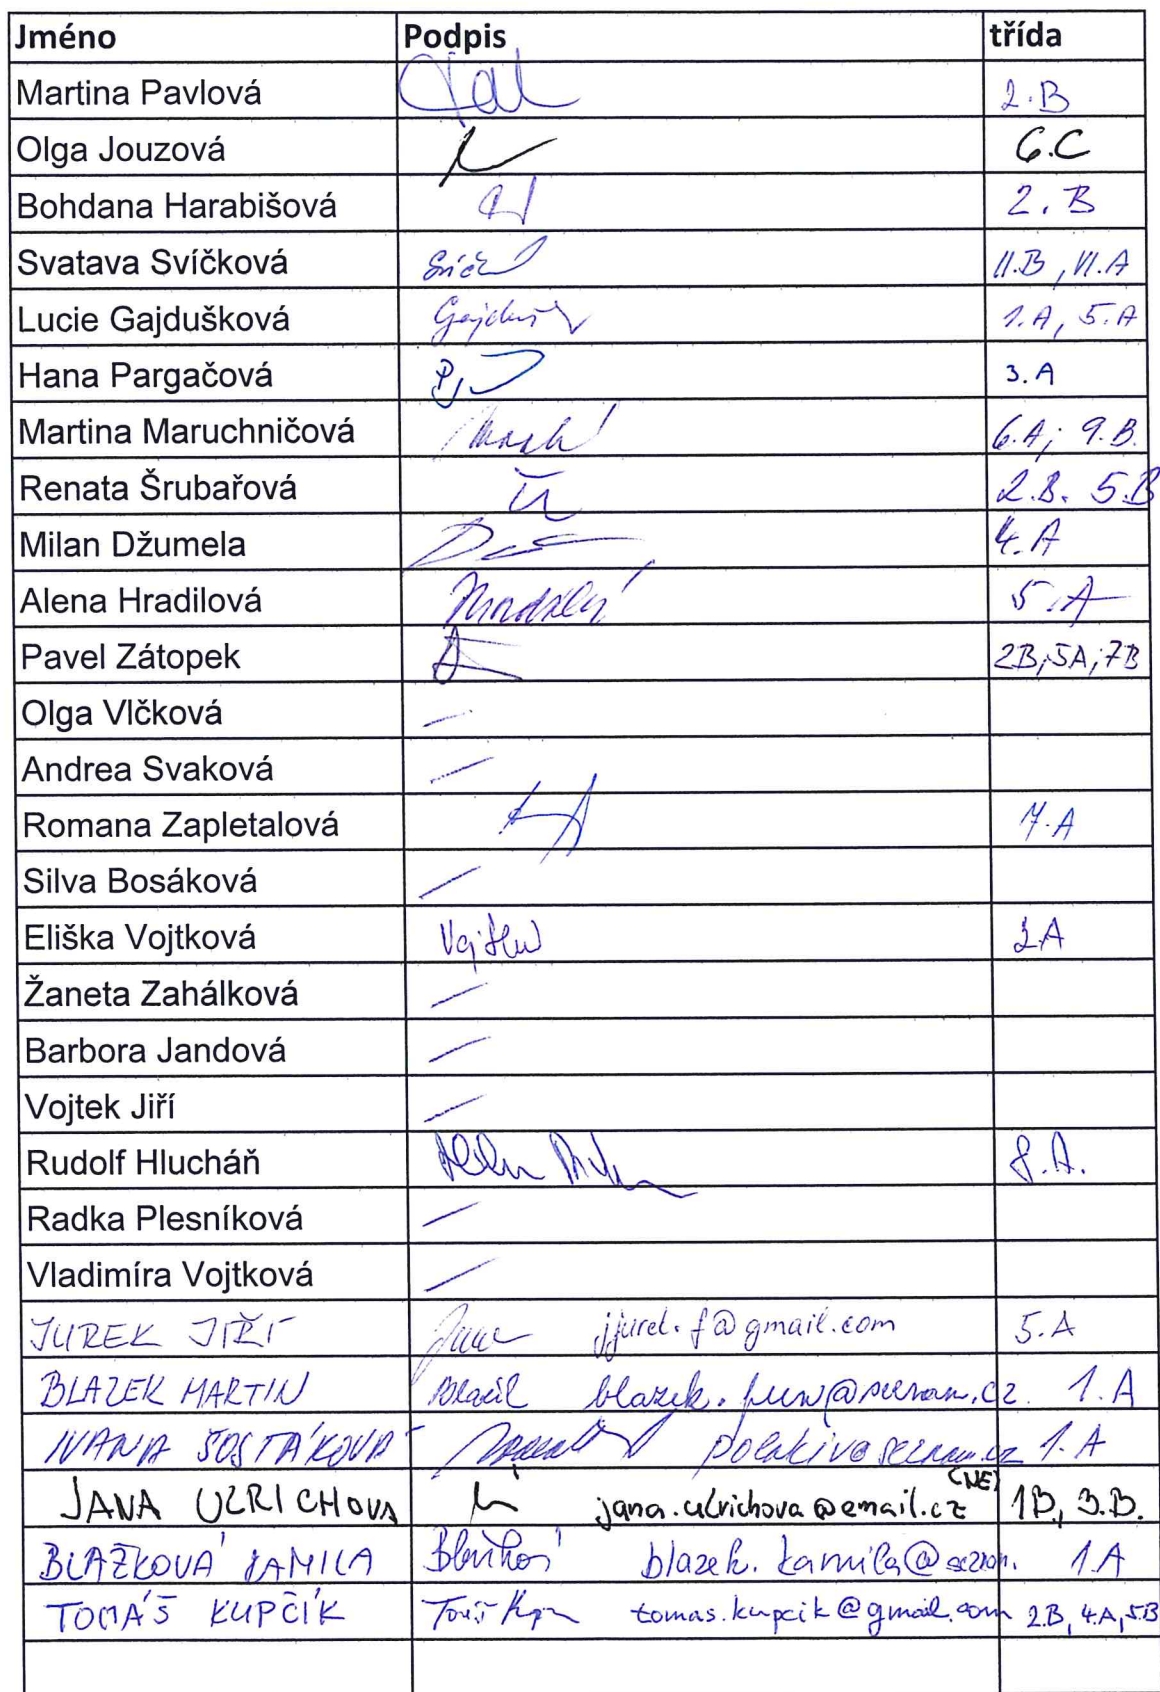 Jméno Podpis třída
Martina Pavlová 2.B
Olga Jouzová 6.C
Bohdana Harabišová 2.B
Svatava Svíčková II.B, VI.A
Lucie Gajdušková 1.A, 5.A
Hana Pargačová 3.A
Martina Maruchničová 6.A; 9.B.
Renata Šrubařová 2.B. 5.B
Milan Džumela 4.A
Alena Hradilová 5.A
Pavel Zátopek 2B;5A;7B
Olga Vlčková
Andrea Svaková
Romana Zapletalová 7.A
Silva Bosáková
Eliška Vojtková 2A
Žaneta Zahálková
Barbora Jandová
Vojtek Jiří
Rudolf Hlucháň 8.A.
Radka Plesníková
Vladimíra Vojtková
JUREK JIŘÍ 5.A
BLAZEK MARTIN 1.A
IVANA ŠOSTÁKOVÁ 1.A
JANA ULRICHOVA jana.ulrichova@email.cz (NE) 1B, 3.B.
BLAŽKOVÁ KAMILA blazek.kamila@ 1.A
TOMÁŠ KUPČÍK tomas.kupcik@gmail.com 2.B, 4.A, 5.B